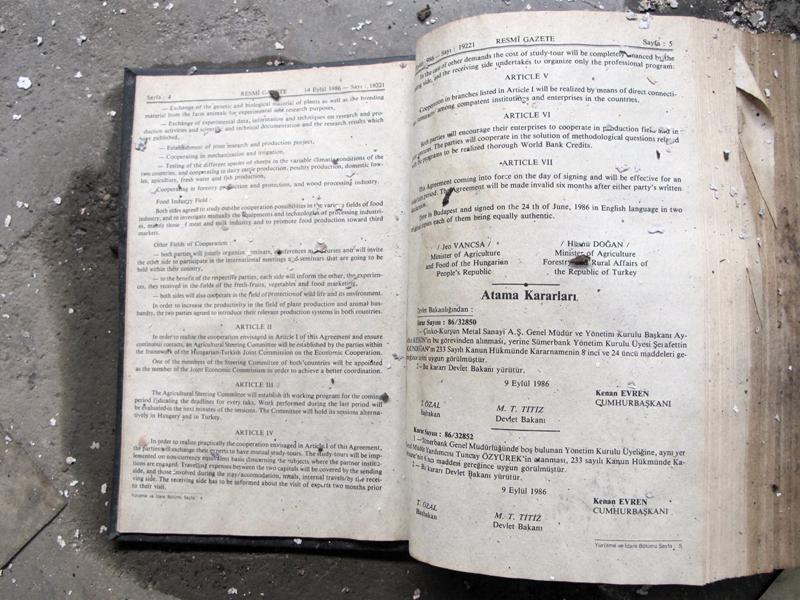 Sayfa : 4 RESMÎ GAZETE 14 Eylül 1986 — Sayı : 19221
— Exchange of the genetic and biological material of plants as well as the breeding
material from the farm animals for experimental and research purposes,
— Exchange of experimental data, information and techniques on research and pro-
duction activities and scientific and technical documentation and the research results which
are published,
— Establishment of joint research and production project,
— Cooperating in mechanization and irrigation,
— Testing of the different species of sheeps in the variable climatic conditions of the
two countries, and cooperating in dairy cattle production, poultry production, domestic fow-
ls, apiculture, fresh water and fish production,
— Cooperating in forestry production and protection, and wood processing industry.
Food Industry Field :
Both sides agreed to study out the cooperation possibilities in the various fields of food
industry, and to investigate mutually the equipments and technologies of processing industri-
es, mainly those of meat and milk industry and to promote food production toward third
markets.
Other Fields of Cooperation :
— both parties will jointly organize seminars, conferences and courses and will invite
the other side to participate in the international meetings and seminars that are going to be
held within their country,
— to the benefit of the respective parties, each side will inform the other, the experien-
ces, they received in the fields of the fresh-fruits, vegetables and food marketing,
— both sides will also cooperate in the field of protection of wild life and its environment.
In order to increase the productivity in the field of plant production and animal hus-
bandry, the two parties agreed to introduce their relevant production systems in both countries.
ARTICLE II
In order to realize the cooperation envisaged in Article I of this Agreement and ensure
continual contacts, an Agricultural Steering Committee will be established by the parties within
the framework of the Hungarian-Turkish Joint Commission on the Economic Cooperation.
One of the members of the Steering Committee of both countries will be appointed
as the member of the Joint Economic Commission in order to achieve a better coordination.
ARTICLE III
The Agricultural Steering Committee will establish its working program for the coming
period indicating the deadlines for every taks. Work performed during the last period will
be evaluated in the next minutes of the sessions. The Committee will hold its sessions alterna-
tively in Hungary and in Turkey.
ARTICLE IV
In order to realize practically the cooperation envisaged in Article I of this Agreement,
the parties will exchange their experts to have mutual study-tours. The study-tours will be imp-
lemented on non-currency equivalent basis concerning the subjects where the partner institu-
tions are engaged. Travelling expenses between the two capitals will be covered by the sending
side, and those involved during the stay/accomodation, meals, internal travels/by the recei-
ving side. The receiving side has to be informed about the visit of experts two months prior
to their visit.
Yürütme ve İdare Bölümü Sayfa : 4
1986 — Sayı : 19221 RESMÎ GAZETE Sayfa : 5
In the case of other demands the cost of study-tour will be completely financed by the
side, and the receiving side undertakes to organize only the professional program.
ARTICLE V
Cooperation in branches listed in Article I will be realized by means of direct connecti-
among competent institutions and enterprises in the countries.
ARTICLE VI
Both parties will encourage their enterprises to cooperate in production field and in
The parties will cooperate in the solution of methodological questions related
programs to be realized thorough World Bank Credits.
ARTICLE VII
This Agreement coming into force on the day of signing and will be effective for an
period. The Agreement will be made invalid six months after either party's written
Done in Budapest and signed on the 24 th of June, 1986 in English language in two
original copies each of them being equally authentic.
/ Jeo VANCSA / / Hüsnü DOĞAN /
Minister of Agriculture Minister of Agriculture
and Food of the Hungarian Forestry and Rural Affairs of
People's Republic the Republic of Turkey
Atama Kararları
Devlet Bakanlığından :
Karar Sayısı : 86/32850
1 – Çinko-Kurşun Metal Sanayi A.Ş. Genel Müdür ve Yönetim Kurulu Başkanı Ay-
bu görevinden alınması, yerine Sümerbank Yönetim Kurulu Üyesi Şerafettin
233 Sayılı Kanun Hükmünde Kararnamenin 8 inci ve 24 üncü maddeleri ge-
reğince uygun görülmüştür.
2 – Bu kararı Devlet Bakanı yürütür.
9 Eylül 1986
Kenan EVREN
CUMHURBAŞKANI
T. ÖZAL M. T. TİTİZ
Başbakan Devlet Bakanı
Karar Sayısı : 86/32852
1 – Sümerbank Genel Müdürlüğünde boş bulunan Yönetim Kurulu Üyeliğine, aynı yer
Müdür Yardımcısı Tuncay ÖZYÜREK'in atanması, 233 sayılı Kanun Hükmünde Ka-
maddesi gereğince uygun görülmüştür.
2 – Bu kararı Devlet Bakanı yürütür.
9 Eylül 1986
Kenan EVREN
CUMHURBAŞKANI
T. ÖZAL M. T. TİTİZ
Başbakan Devlet Bakanı
Yürütme ve İdare Bölümü Sayfa : 5